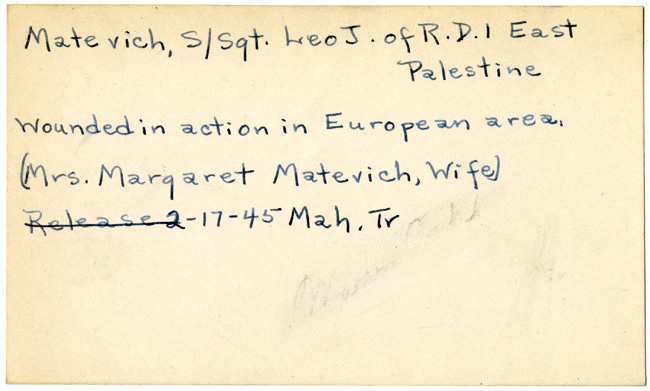 Matevich, S/Sgt. Leo J. of R.D.1 East
Palestine
Wounded in action in European area.
(Mrs. Margaret Matevich, Wife)
Release 2-17-45 Mah. Tr